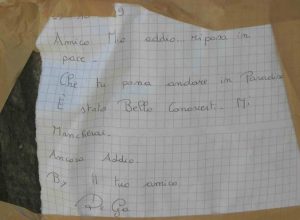 Amico Mio addio.. riposa in
pace.
Che tu possa andare in Paradiso
È stato Bello Conoscerti. Mi
Mancherai.
Ancora Addio.
By Il tuo amico